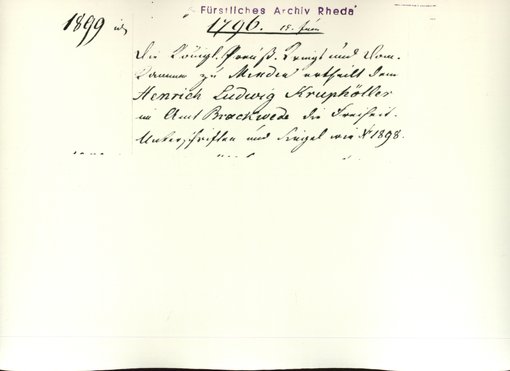 Fürstliches Archiv Rheda
1899
1796. 15. Juni
Die Königl. Preuß. Kriegs und Dom.
Cammer zu Minden ertheilt dem
Henrich Ludwig Kruphölter
im Amt Brackwede die Freiheit.
Unterschriften und Siegel wie N 1898.